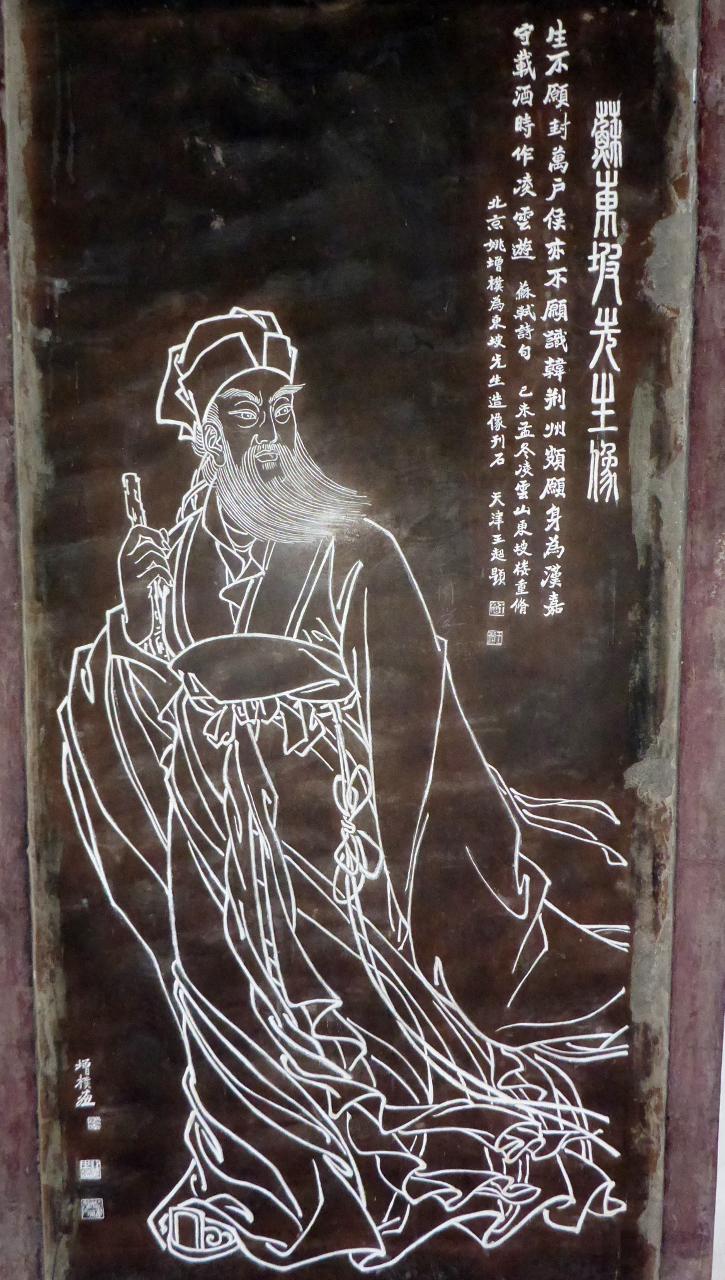 蘇東坡先生像
生不願封萬户侯亦不願識韓荆州頰願身為漢嘉
守載酒時作凌雲遊 蘇軾詩句 己未孟冬凌雲山東坡楼重脩
北京姚增樸為東坡先生造像刋石 天津王超題
增樸画